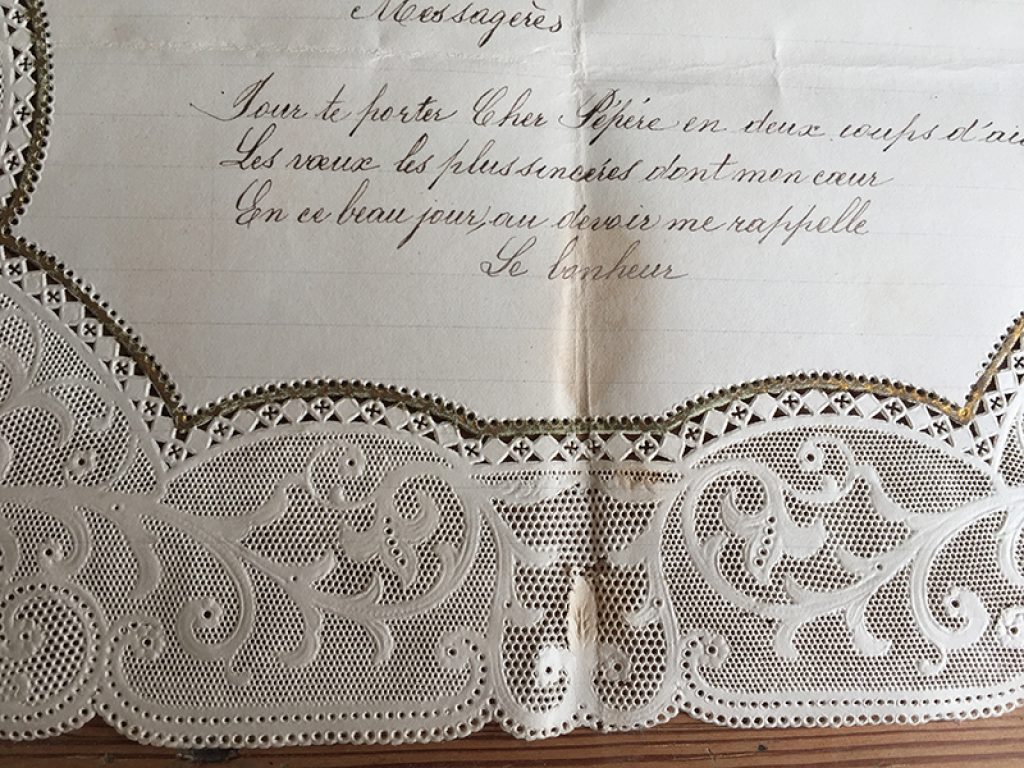 Messagères
Pour te porter Cher Pépére en deux coups d'ai
Les vœux les plus sincéres dont mon cœur
En ce beau jour, au devoir me rappelle
Le bonheur